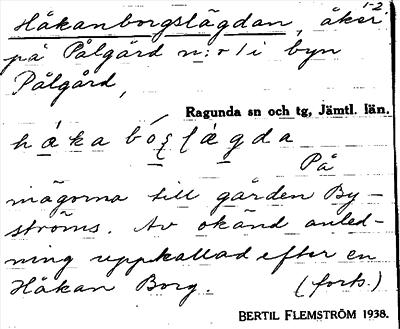 1-2
Håkanborgslägdan, åker
på Pålgård n:o 1 i byn
Pålgård,
Ragunda sn och tg, Jämtl. län.
På
mägorna till gården By-
ströms. Av okänd anled-
ning uppkallad efter en
Håkan Borg. (forts.)
BERTIL FLEMSTRÖM 1938.